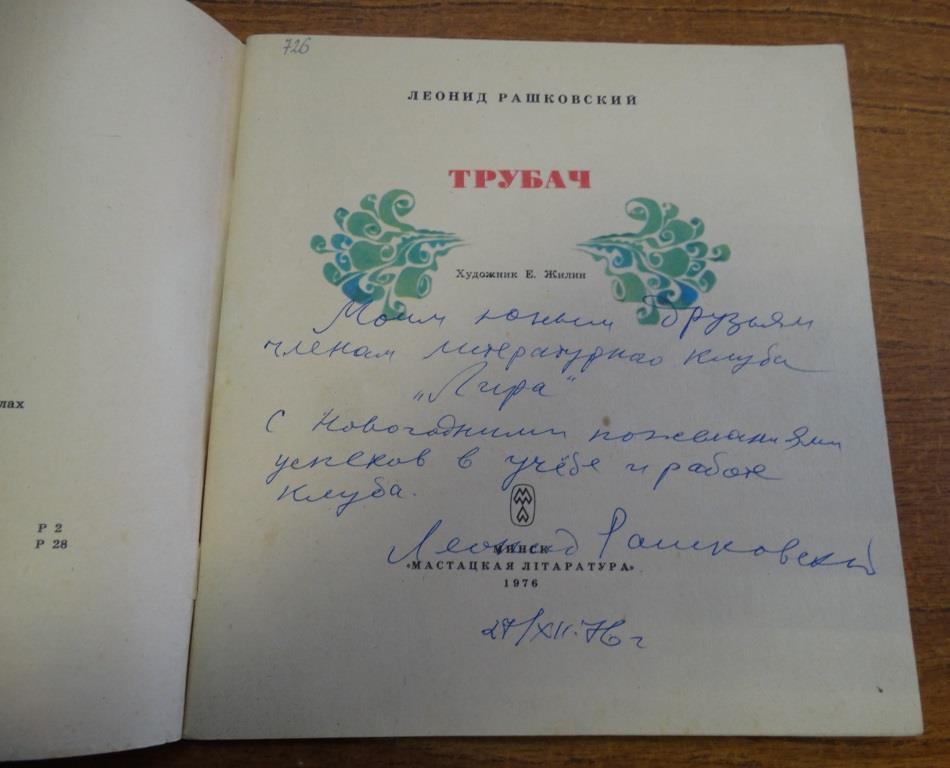 726
ЛЕОНИД РАШКОВСКИЙ
ТРУБАЧ
Художник Е. Жилин
Моим юным друзьям
членам литературнао клуба
„Лира"
С Новогодними пожеланиями
успехов в учёбе и работе
клуба.
Леонид Рашковский
МИНСК
«МАСТАЦКАЯ ЛІТАРАТУРА»
1976
27/XII-76 г
лах
Р 2
Р 28